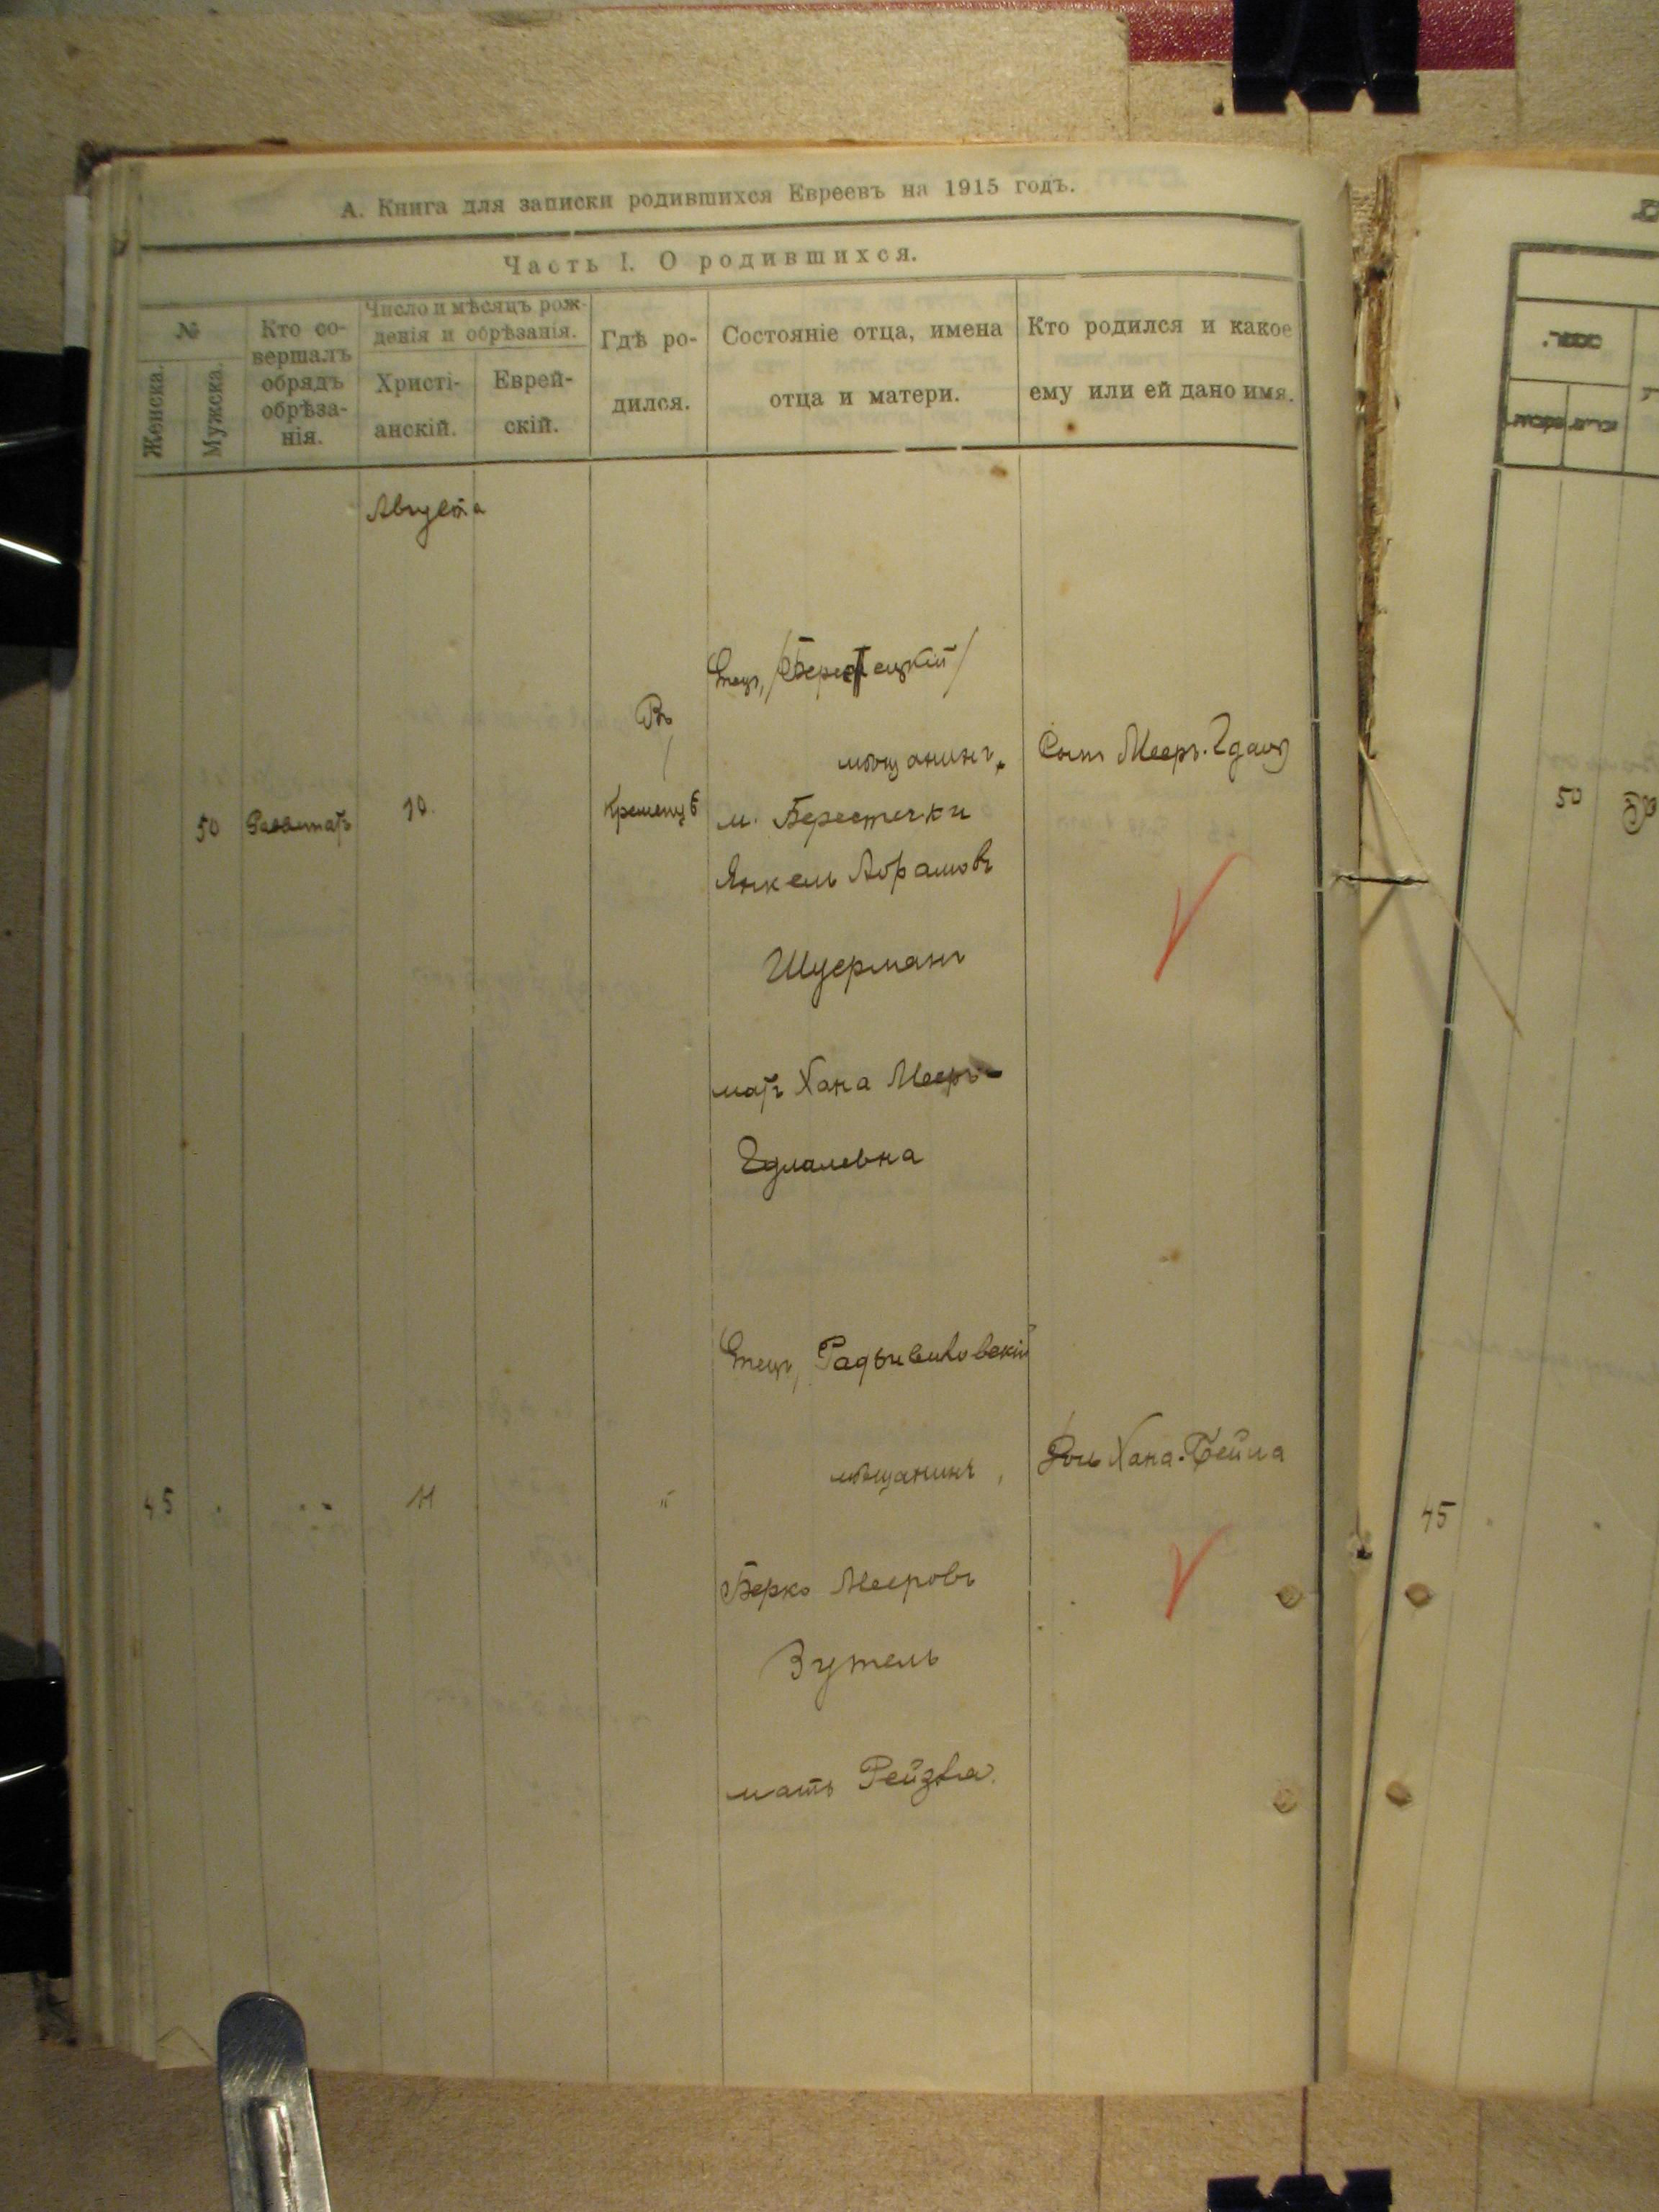 А. Книга для записки родившихся Евреевъ на 1915 годъ.
Часть I. О родившихся.
№
Женска.
Мужска.
Кто со-
вершалъ
обрядъ
обрѣза-
нія.
Число и мѣсяцъ рож-
денія и обрѣзанія.
Христі-
анскій.
Еврей-
скій.
Гдѣ ро-
дился.
Состояніе отца, имена
отца и матери.
Кто родился и какое
ему или ей дано имя.
Августа
50
10.
Въ
Кременцѣ
Отецъ, /Берестецкій/
мѣщанинъ,
м. Берестечки
Янкель Абрамовъ
Шуерманъ
мать Хана Мееръ-
Сынъ Мееръ
45
11
"
Отецъ, Радзивиловскій
мѣщанинъ,
Берко Мееровъ
Зутель
мать Рейзва.
Дочь Хана-Бейла
50
45